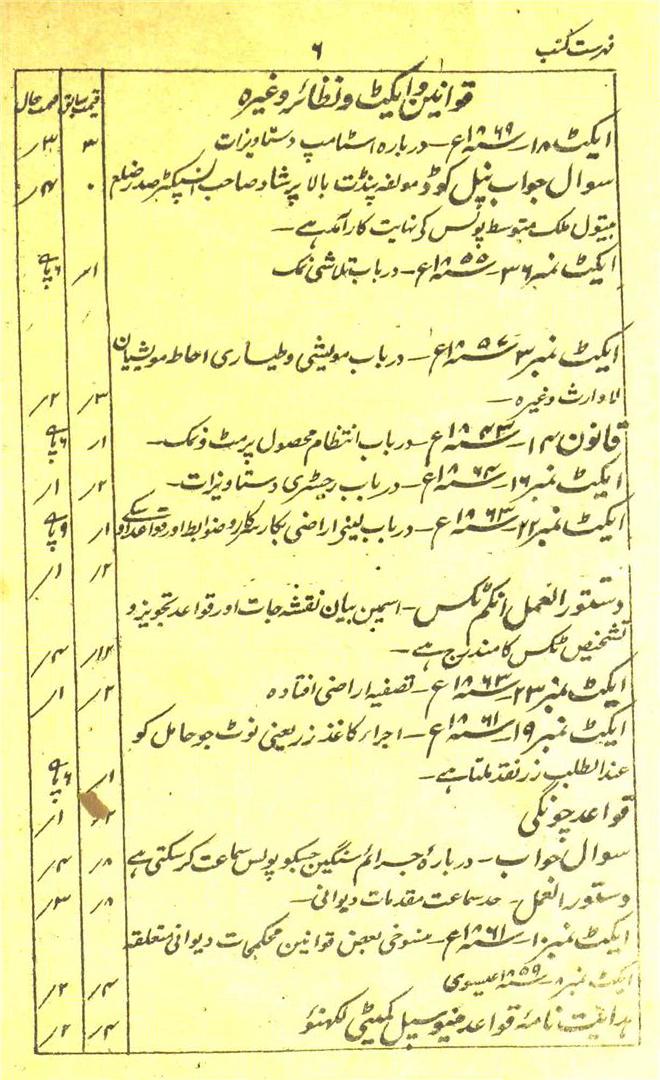 فہرست کتب ۶
قوانین و ایکٹ و نظائر وغیرہ قیمت سابق قیمت حال
ایکٹ ۱۸۔ سنہ ۱۸۶۹ع۔ دربارہ اسٹامپ دستاویزات ۳ ۳؍
سوال جواب نپل کوڈ مولفہ پنڈت بالا پرشاد صاحب انسپکٹر صدر ضلع ۰ ۴؍
بیتول ملک متوسط پولس کی نہایت کار آمد ہے۔
ایکٹ نمبر ۳۶۔ سنہ ۱۸۵۵ع۔ درباب تلاشی نمک ۱؍ ۶ پاے
ایکٹ نمبر ۳۔ سنہ ۱۸۵۷ع۔ درباب مویشی وطیاری احاطہ مویشیان
لاوارث وغیرہ۔ ۳؍ ۲؍
قانون ۱۴۔ سنہ ۱۸۴۳ع۔ درباب انتظام محصول پرمٹ و نمک۔ ۱؍ ۶ پاے
ایکٹ نمبر ۱۶۔ سنہ ۱۸۶۴ع۔ درباب رجسٹری دستاویزات۔ ۲؍ ۱؍
ایکٹ نمبر ۲۲۔ سنہ ۱۸۶۳ع۔ درباب لینی اراضی بکار سرکار و ضوابط اور قواعد اوسکے ۱؍ ۹ پاے
۲؍ ۱؍
دستور العمل انکم ٹکس۔ اسمین بیان نقشہ جات اور قواعد تجویز و
تشخیص ٹکس کا مندرج ہے۔ ۱۲؍ ۴؍
ایکٹ نمبر ۲۳۔ سنہ ۱۸۶۳ع۔ تصفیہ اراضی افتادہ ۲؍ ۱؍
ایکٹ نمبر ۱۹۔ سنہ ۱۸۶۱ع۔ اجراء کاغذ زر یعنی نوٹ جو حامل کو
عند الطلب زر نقد ملتا ہے۔ ۱؍ ۶ پاے
قواعد چونگی ۲؍ ۱؍
سوال جواب۔ دربارۂ جرائم سنگین جسکو پولس سماعت کر سکتی ہے ۸؍ ۴؍
دستور العمل۔ حد سماعت مقدمات دیوانی۔ ۸؍ ۳؍
ایکٹ نمبر ۱۰۔ سنہ ۱۸۶۱ع۔ منسوخی بعض قوانین محکمجات دیوانی متعلقہ
ایکٹ نمبر ۸۔ سنہ ۱۸۵۹ عیسوی ۴؍ ۲؍
ہدایت نامۂ قواعد منیوسپل کمیٹی لکھنؤ ۴؍ ۲؍